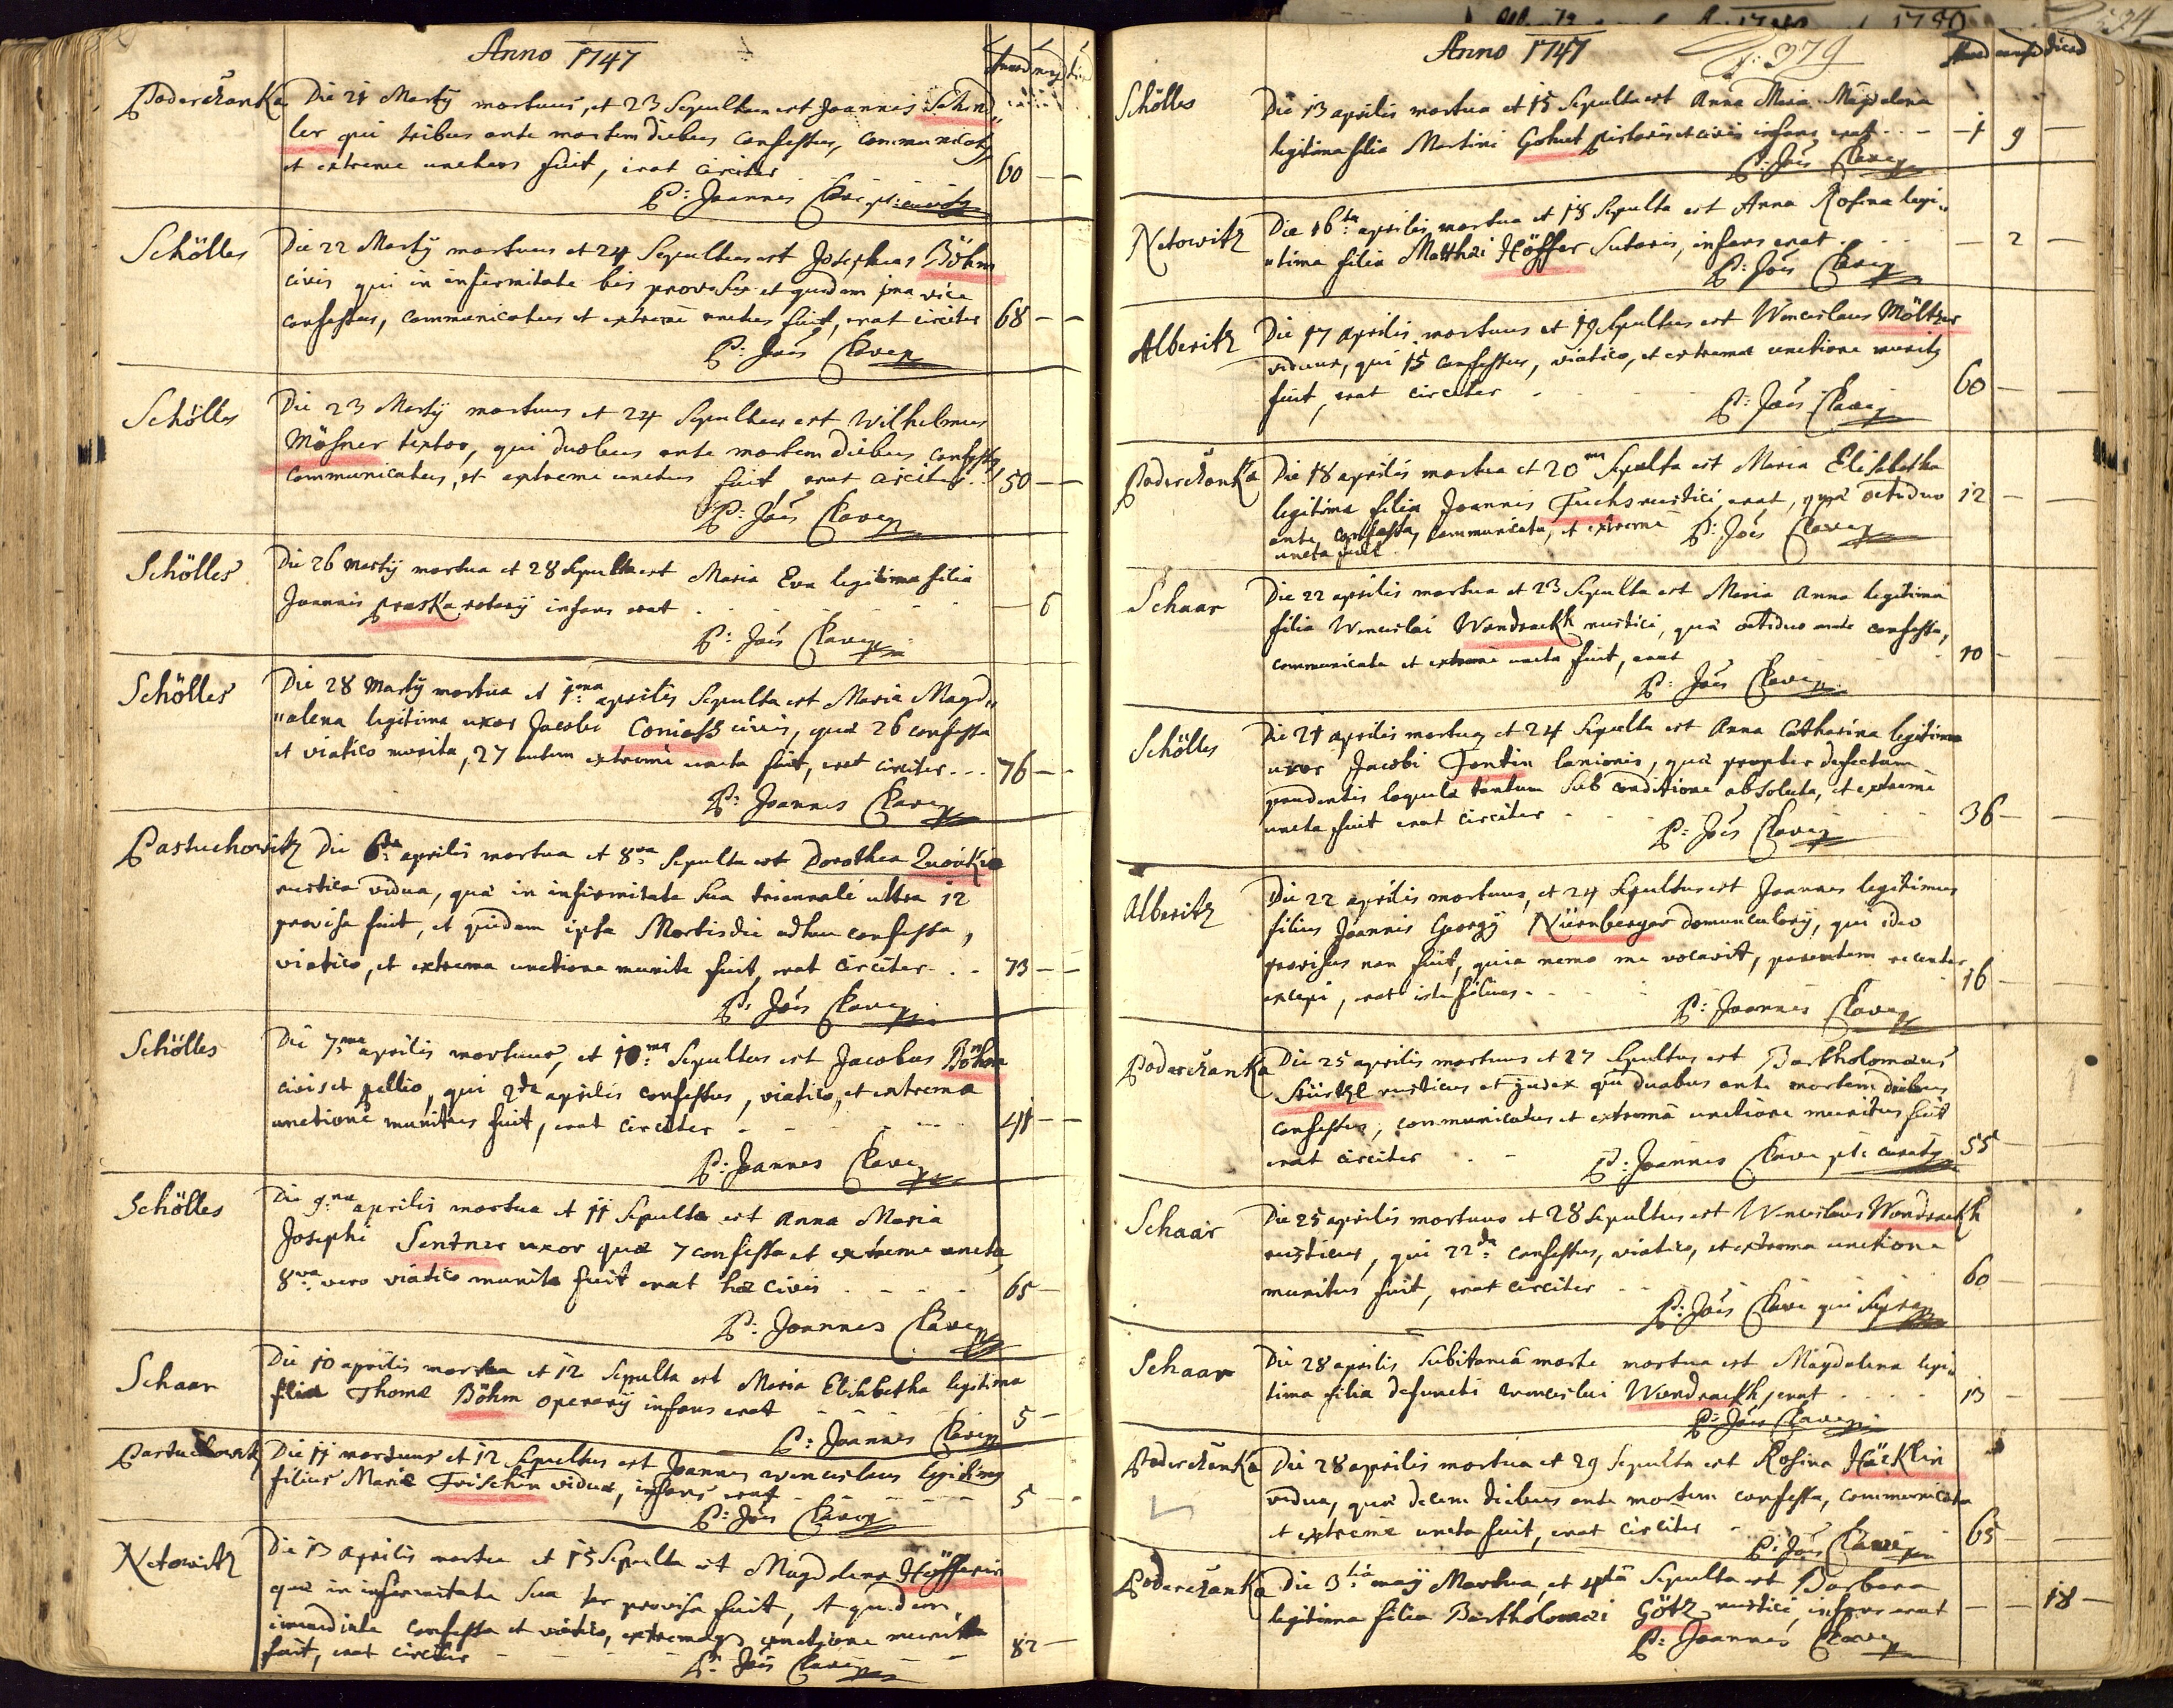 Anno 1747
Poderczanka Die 21 Martÿ mortuus, et 23 Sepultus est Joannes Schind„
ler qui tribus ante mortem diebus confessus, communicatus
et extreme unctus fuit, erat circiter 60 — —
P: Joannes Clave pt: curatus
Schölles Die 22 Martÿ mortuus et 24 Sepultus est Josephus Böhm
civis qui in infirmitate bis provisus et quidem 1ma vice
confessus, communicatus et extreme unctus fuit, erat circiter 68 — —
P: Jões Clave
Schölles Die 23 Martÿ mortuus et 24 Sepultus est Wilhelmus
Mösner textor, qui duobus ante mortem diebus confessus
communicatus, et extreme unctus fuit erat circiter 50 — —
P: Jões Clave
Schölles Die 26 Martÿ mortua et 28 Sepulta est Maria Eva legitima filia
Joannis praska rotarÿ infans erat — 6
P: Jões Clave
Schölles Die 28 Martÿ mortua et 1ma aprilis Sepulta est Maria Magd„
„alena legitima uxor Jacobi Coniass civis, quæ 26 confessa
et viatico munita, 27 autem extreme uncta fuit, erat circiter 76 — —
P: Joannes Clave
Pastuchowitz Die 6ta aprilis mortua et 8va Sepulta est Dorothea
rustica vidua, quæ in infirmitate Sua triennali ultra 12
provisa fuit, et quidem ipsa Mortis die adhuc confessa,
viatico, et extrema unctione munita fuit, erat circiter 73 — —
P: Jões Clave
Schölles Die 7ma aprilis mortuus, et 10ma Sepultus est Jacobus Böhm
civis et pellio, qui 2da aprilis confessus, viatico, et extrema
unctione munitus fuit, erat circiter 41 — —
P: Joannes Clave
Schölles Die 9na aprilis mortua et 11 Sepulta est Anna Maria
Josephi Sentner uxor quæ 7 confessa et extreme uncta,
8va vero viatico munita fuit erat hæc civis 65 —
P: Joannes Clave
Schaar Die 10 aprilis mortua et 12 Sepulta est Maria Elisabetha legitima
filia Thomæ Böhm operarÿ infans erat 5 —
P: Joannes Clave
Pastuchowitz Die 11 mortuus et 12 Sepultus est Joannes wenceslaus legitimus
filius Mariæ Frischin viduæ, infans erat 5 — —
P: Jões Clave
Netowitz Die 13 aprilis mortua et 15 Sepulta est Magdalena Höfferin
quæ in infirmitate Sua ter provisa fuit, et quidem
confessa et viatico, extremaq unctione munita
fuit, erat circiter 82 —
P: Jões Clave
Anno 1747
p: 379
Schölles Die 13 aprilis mortua et 15 Sepulta est Anna Maria Magdalena
legitima filia Martini Gohut pistoris et civis infans erat — 1 9 —
P: Jões Clave
Netowitz Die 16ta aprilis mortua et 18 Sepulta est Anna Rosina legi„
„tima filia Matthæi Höffer Sutoris, infans erat — 2 —
P: Jões Clave
Alberitz Die 17 aprilis mortuus et 19 Sepultus est Wenceslaus Möltzer
viduus, qui 15 confessus, viatico, et extrema unctione munitus
fuit, erat circiter 60 — —
P: Jões Clave
Poderczanka Die 18 aprilis mortua et 20ma Sepulta est Maria Elisabetha
legitima filia Joannis Fuchs rustici erat, quæ octiduo 12 — —
ante confessa, communicata, et extreme P: Jões Clave
uncta fuit
Schaar Die 22 aprilis mortua et 23 Sepulta est Maria Anna legitima
filia Wenceslai Wondrackh rustici, quæ octiduo ante confessa,
communicata et extreme uncta fuit, erat 10 —
P: Jões Clave
Schölles Die 21 aprilis mortua et 24 Sepulta est Anna Catharina legitima
uxor Jacobi Fontin lanionis, quæ propter defectum
prudentis loquelæ tantum Sub conditione absoluta, et extreme
uncta fuit erat circiter 36 — —
P: Jões Clave
Alberitz Die 22 aprilis mortuus, et 24 Sepultus est Joannes legitimus
filius Joannis Georgÿ Nürnberger domuncularÿ, qui ideo
provisus non fuit, quia nemo me vocavit, parentem recenter
excepi, erat iste filius 16 —
P: Joannes Clave
Poderczanka Die 25 aprilis mortuus et 27 Sepultus est Bartholomæus
Stürtzl rusticus et Judex qui duobus ante mortem diebus
confessus, communicatus et extrema unctione munitus fuit
erat circiter 55
P: Joannes Clave pt: curatus
Schaar Die 25 aprilis mortuus et 28 Sepultus est Wenceslaus Wondrackh
rusticus, qui 22da confessus, viatico, et extrema unctione
munitus fuit, erat circiter 60 —
P: Jões Clave qui supra
Schaar Die 28 aprilis Subitanea morte mortua est Magdalena legi„
tima filia defuncti wenceslai Wondrackh, erat 13 —
P: Jões Clave
Poderczanka Die 28 aprilis mortua et 29 Sepulta est Rosina Häcklin
vidua, quæ decem diebus ante mortem confessa, communicata
et extreme uncta fuit, erat circiter 65 —
P: Jões Clave
Poderczanka Die 3tia maÿ Mortua, et 4ta Sepulta est Barbara
legitima filia Bartholomæi Götz rustici, infans erat — — 18 —
P: Joannes Clave